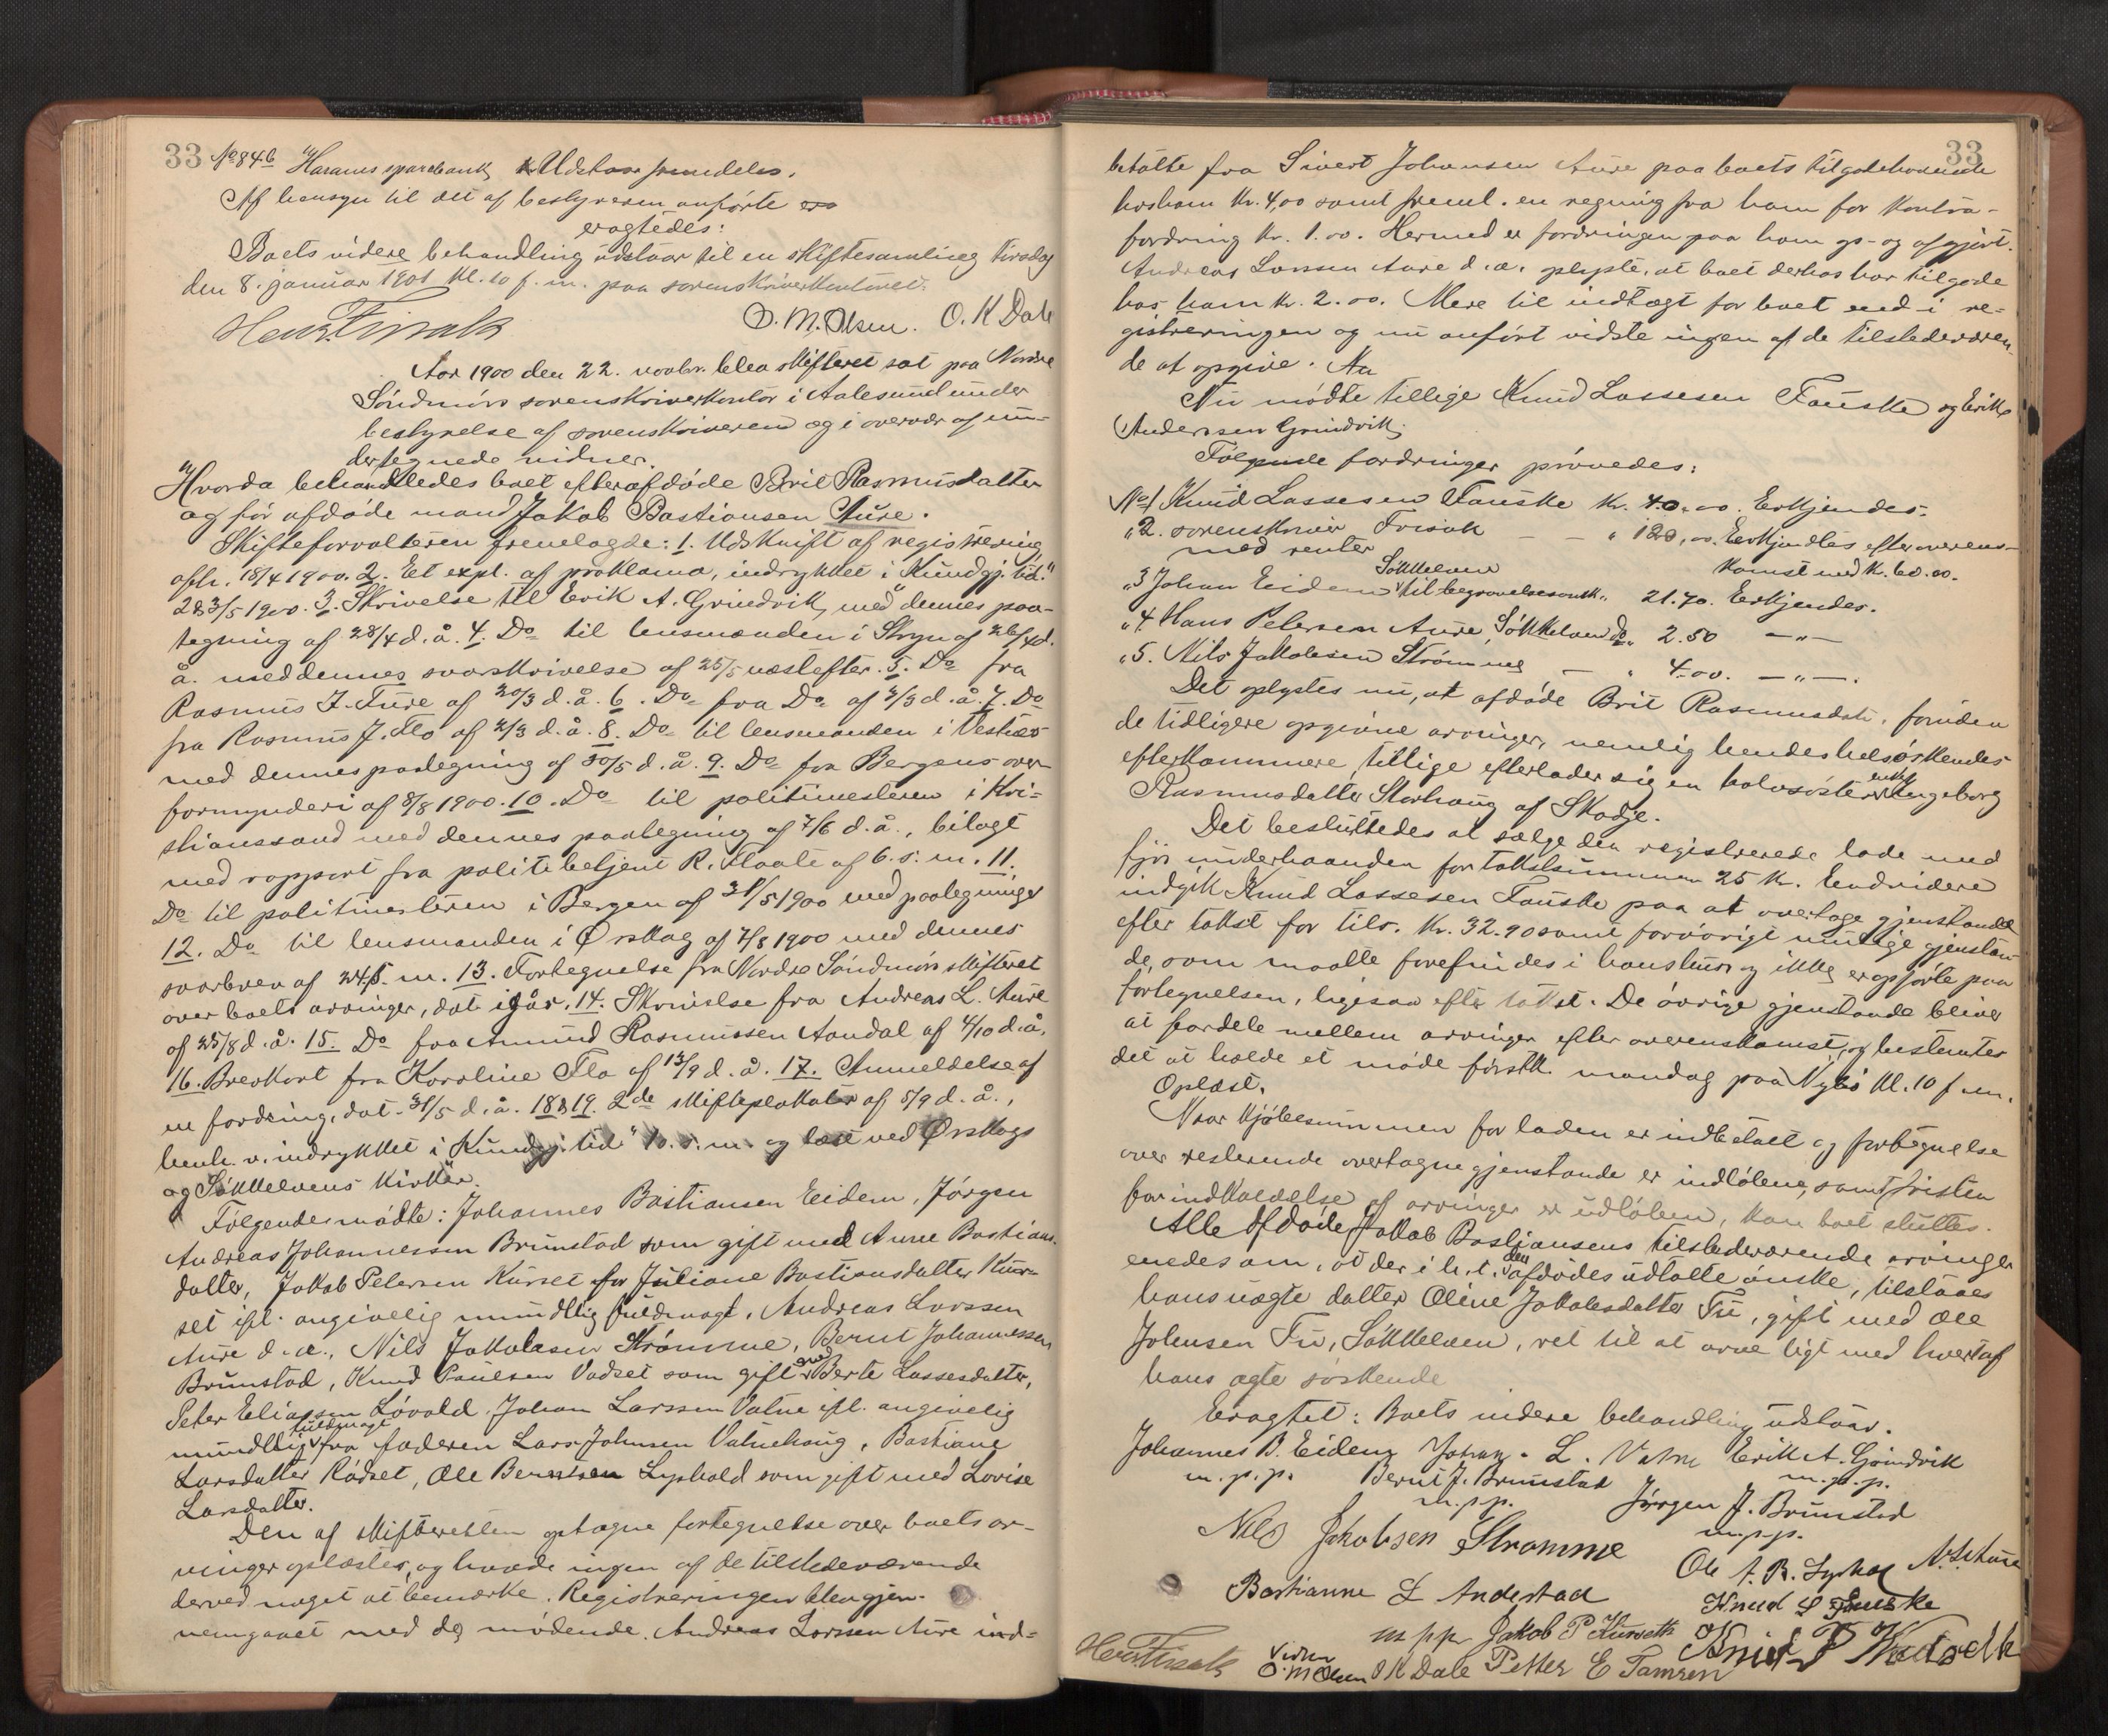 33 No 846 Harams sparebank Udstaar fremdeles.
Af hensyn til det af bestyreren anførte
eragtedes:
Boets videre behandling udstaar til en skiftesamling tirsdag
den 8. januar 1901 kl. 10 f. m. paa sorenskriverkontoret.
O. M. Olsen. O. K Dale
Aar 1900 den 22. novbr. blev skifteret sat paa Nordre
Søndmørs sorenskriverkontor i Aalesund under
bestyrelse af sorenskriveren og i overvær af un-
dertegnede vidner.
Hvorda behandledes boet efter afdøde Brit Rasmusdatter
og før afdøde mand Jakob Bastiansen Aure.
Skifteforvalteren fremlagde: 1. Udskrift af registrering
afh. 18/4 1900. 2. Et expl. af proklama, indrykket i Kundgj. tid."
2&3/5 1900. 3. Skrivelse til Erik A. Grindvik, med dennes paa-
tegning af 28/4 d. å. 4. Do til lensmanden i Stryn af 26/4 d.
å. med dennes svarskrivelse af 25/5 næstefter. 5. Do fra
Rasmus J. af 20/3 d. å. 6. Do fra Do af 2/3 d. å. 7. Do
fra Rasmus J. Flo af 2/3 d. å. 8. Do til lensmanden i Vestnæs
med dennes paategning af 30/5 d. å. 9. Do fra Bergens over-
formynderi af 8/8 1900. 10. Do til politimesteren i Kri-
stianssand med dennes paategning af 7/6 d. å., bilagt
med rapport fra politibetjent R. Flaate af 6. s. m. 11.
Do til politimesteren i Bergen af 31/5 1900 med paategninger
12. Do til lensmanden i Ørskog af 7/8 1900 med dennes
svarbrev af 24. s. m. 13. Fortegnelse fra Nordre Søndmørs skifteret
over boets arvinger, dat. igår. 14. Skrivelse fra Andreas L. Aure
af 25/8 d. å. 15. Do fra Amund Rasmussen Aandal af 4/10 d. å.
16. Brevkort fra Karoline Flo af 13/9 d. å. 17. Anmeldelse af
en fordring, dat. 31/5 d. å. 18 & 19. 2de skifteplakater af 5/9 d. å.,
henh. v. indrykket i Kundgj. tid" 10. s. m. og læst ved Ørskogs
og Søkkelvens kirker.
Følgende mødte: Johannes Bastiansen Eidem, Jørgen
Andreas Johannessen Brunstad som gift med Anne Bastians-
datter, Jakob Petersen Kurset for Juliane Bastiansdatter Kur-
set ifl. angivelig mundtlig fuldmagt, Andreas Larssen
Aure d. æ., Nils Jakobsen Strømme, Bernt Johannessen
Brunstad, Knud Paulsen Vadset som gift med Berte Lassesdatter,
Peter Eliassen Løvold, Johan Larssen Vatne ifl. angivelig
mundtlig fuldmagt fra faderen Lars Johnsen Vatnehaug, Bastiane
Larsdatter Rødset, Ole Berntsen Lyshold som gift med Lovise
Larsdatter.
Den af skifteretten optagne fortegnelse over boets ar-
vinger oplæstes, og havde ingen af de tilstedeværende
derved noget at bemærke. Registreringen blev gjen-
nemgaaet med de mødende. Andreas Larssen Aure ind-
33
betalte fra Sivert Johansen Aure paa boets tilgodehavende
hos ham kr. 4,00 samt freml. en regning fra ham for kontra-
fordring kr. 1.00. Hermed er fordringen paa ham op- og afgjort.
Andreas Larssen Aure d. æ. oplyste, at boet derhos har tilgode
hos ham kr. 2.00. Mere til indtægt for boet end i re-
gistreringen og nu anført vidste ingen af de tilstedeværen-
de at opgive.
Nu mødte tillige Knud Lassesen Fauske og Erik
Anderssen Grindvik.
Følgende fordringer prøvedes:
No 1 Knud Lassesen Fauske kr. 40.00. Erkjendes.
" 2. sorenskriver Frisak — — " 120,00. Erkjendtes efter overens-
med renter komst med kr. 60.00.
" 3 Johan Eidem Søkkelven til begravelsesomk. " 21.70. Erkjendes.
" 4. Hans Petersen Aure, Søkkelven Do " 2.50 — " —
" 5. Nils Jakobsen Strømme — " 4.00. — " —.
Det oplystes nu, at afdøde Brit Rasmusdatt. foruden
de tidligere opgivne arvinger, nemlig hendes helsøskendes
efterkommere, tillige efterlader sig en halvsøster enke Ingeborg
Rasmusdatter Storhaug af Skodje.
Det besluttedes at sælge den registrerede lade med
fjøs underhaanden for takstsummen 25 kr. Endvidere
indgik Knud Lassesen Fauske paa at overtage gjenstande
efter takst for tils. kr. 32.90 samt forøvrigt mulige gjenstan-
de, som maatte forefindes i hans hus og ikke er opførte paa
fortegnelsen, ligesaa efter takst. De øvrige gjenstande bliver
at fordele mellem arvinger efter overenskomst, og bestemtes
det at holde et møde førstk. mandag paa kl. 10 f. m.
Oplæst.
Naar kjøbesummen for laden er indbetalt og fortegnelse
over resterende overtagne gjenstande er indløbne, samt fristen
for indkaldelse af arvinger er udløben, kan boet sluttes.
Alle afdøde Jakob Bastiansens tilstedeværende arvinger
enedes om, at der i h. t. den afdødes udtalte ønske, tilstaaes
hans uægte datter Oline Jakobsdatter Tu, gift med Ole
Johnsen Tu, Søkkelven, ret til at arve ligt med hvert af
hans ægte søskende
Eragtet: Boets videre behandling udstaar.
Johannes B. Eidem Johan. L. Vatne Erik A. Grindvik
m. p. p. Bernt J. Brunstad m. p. p.
m. p. p. Jørgen J. Brunstad
Nils Jakobsen Strømme m. p. p.
Ole A. B. A. L. Aure
Bastianne L Andestad Knud L Fauske
m p p Jakob P Kurseth
Vidner
O. M Olsen O K Dale Petter E